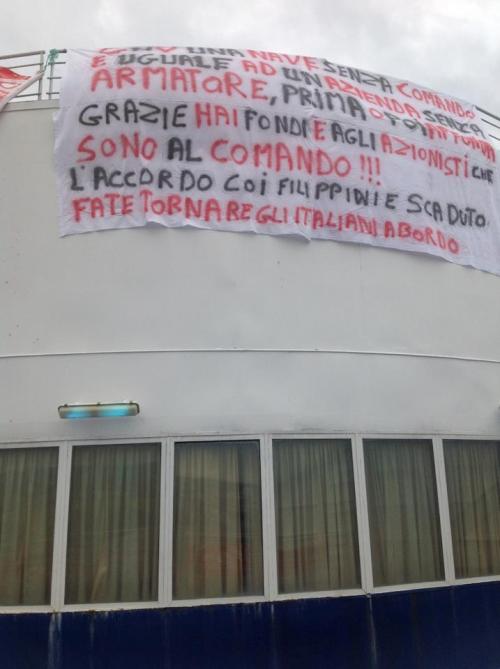 UNA NAVE SENZA COMANDO
E UGUALE AD UN AZIENDA SENZA
ARMATORE, PRIMA O POI AFFONDA
GRAZIE HAI FONDI E AGLI AZIONISTI CHE
SONO AL COMANDO !!!
L'ACCORDO COI FILIPPINI E SCADUTO
FATE TORNARE GLI ITALIANI A BORDO